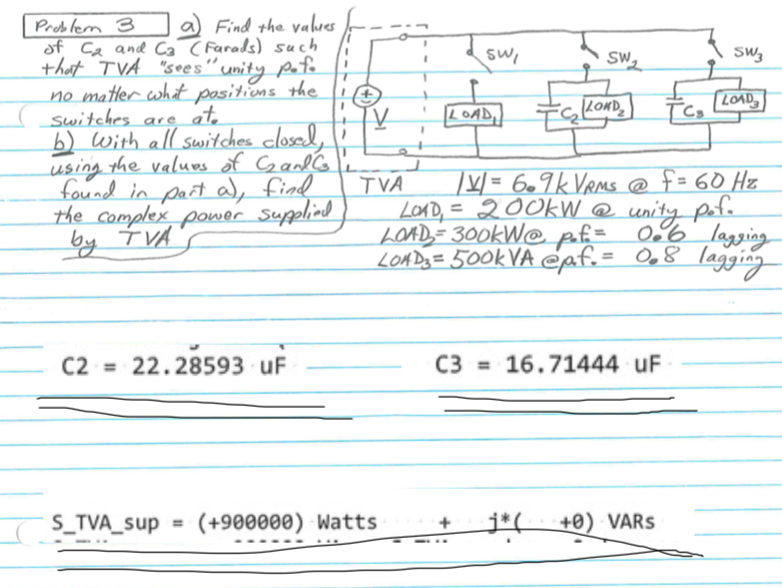 Problem 3 a) Find the values
of C2 and C3 (Farads) such
that TVA "sees" unity p.f.
no matter what positions the
switches are at.
b) With all switches closed,
using the values of C2 and C3
found in part a), find
the complex power supplied
by TVA
SW1 SW2 SW3
+ V LOAD1 C2 LOAD2 C3 LOAD3
TVA |V| = 6.9k VRMS @ f = 60 Hz
LOAD1 = 200kW @ unity p.f.
LOAD2 = 300kW @ p.f. = 0.6 lagging
LOAD3 = 500kVA @ p.f. = 0.8 lagging
C2 = 22.28593 uF C3 = 16.71444 uF
S_TVA_sup = (+900000) Watts + j*( +0) VARs